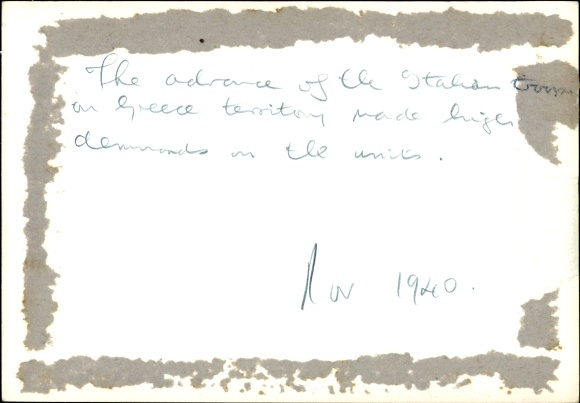 The advance of the Italian troops
on Greece territory made high
demands on the units.
Nov 1940.